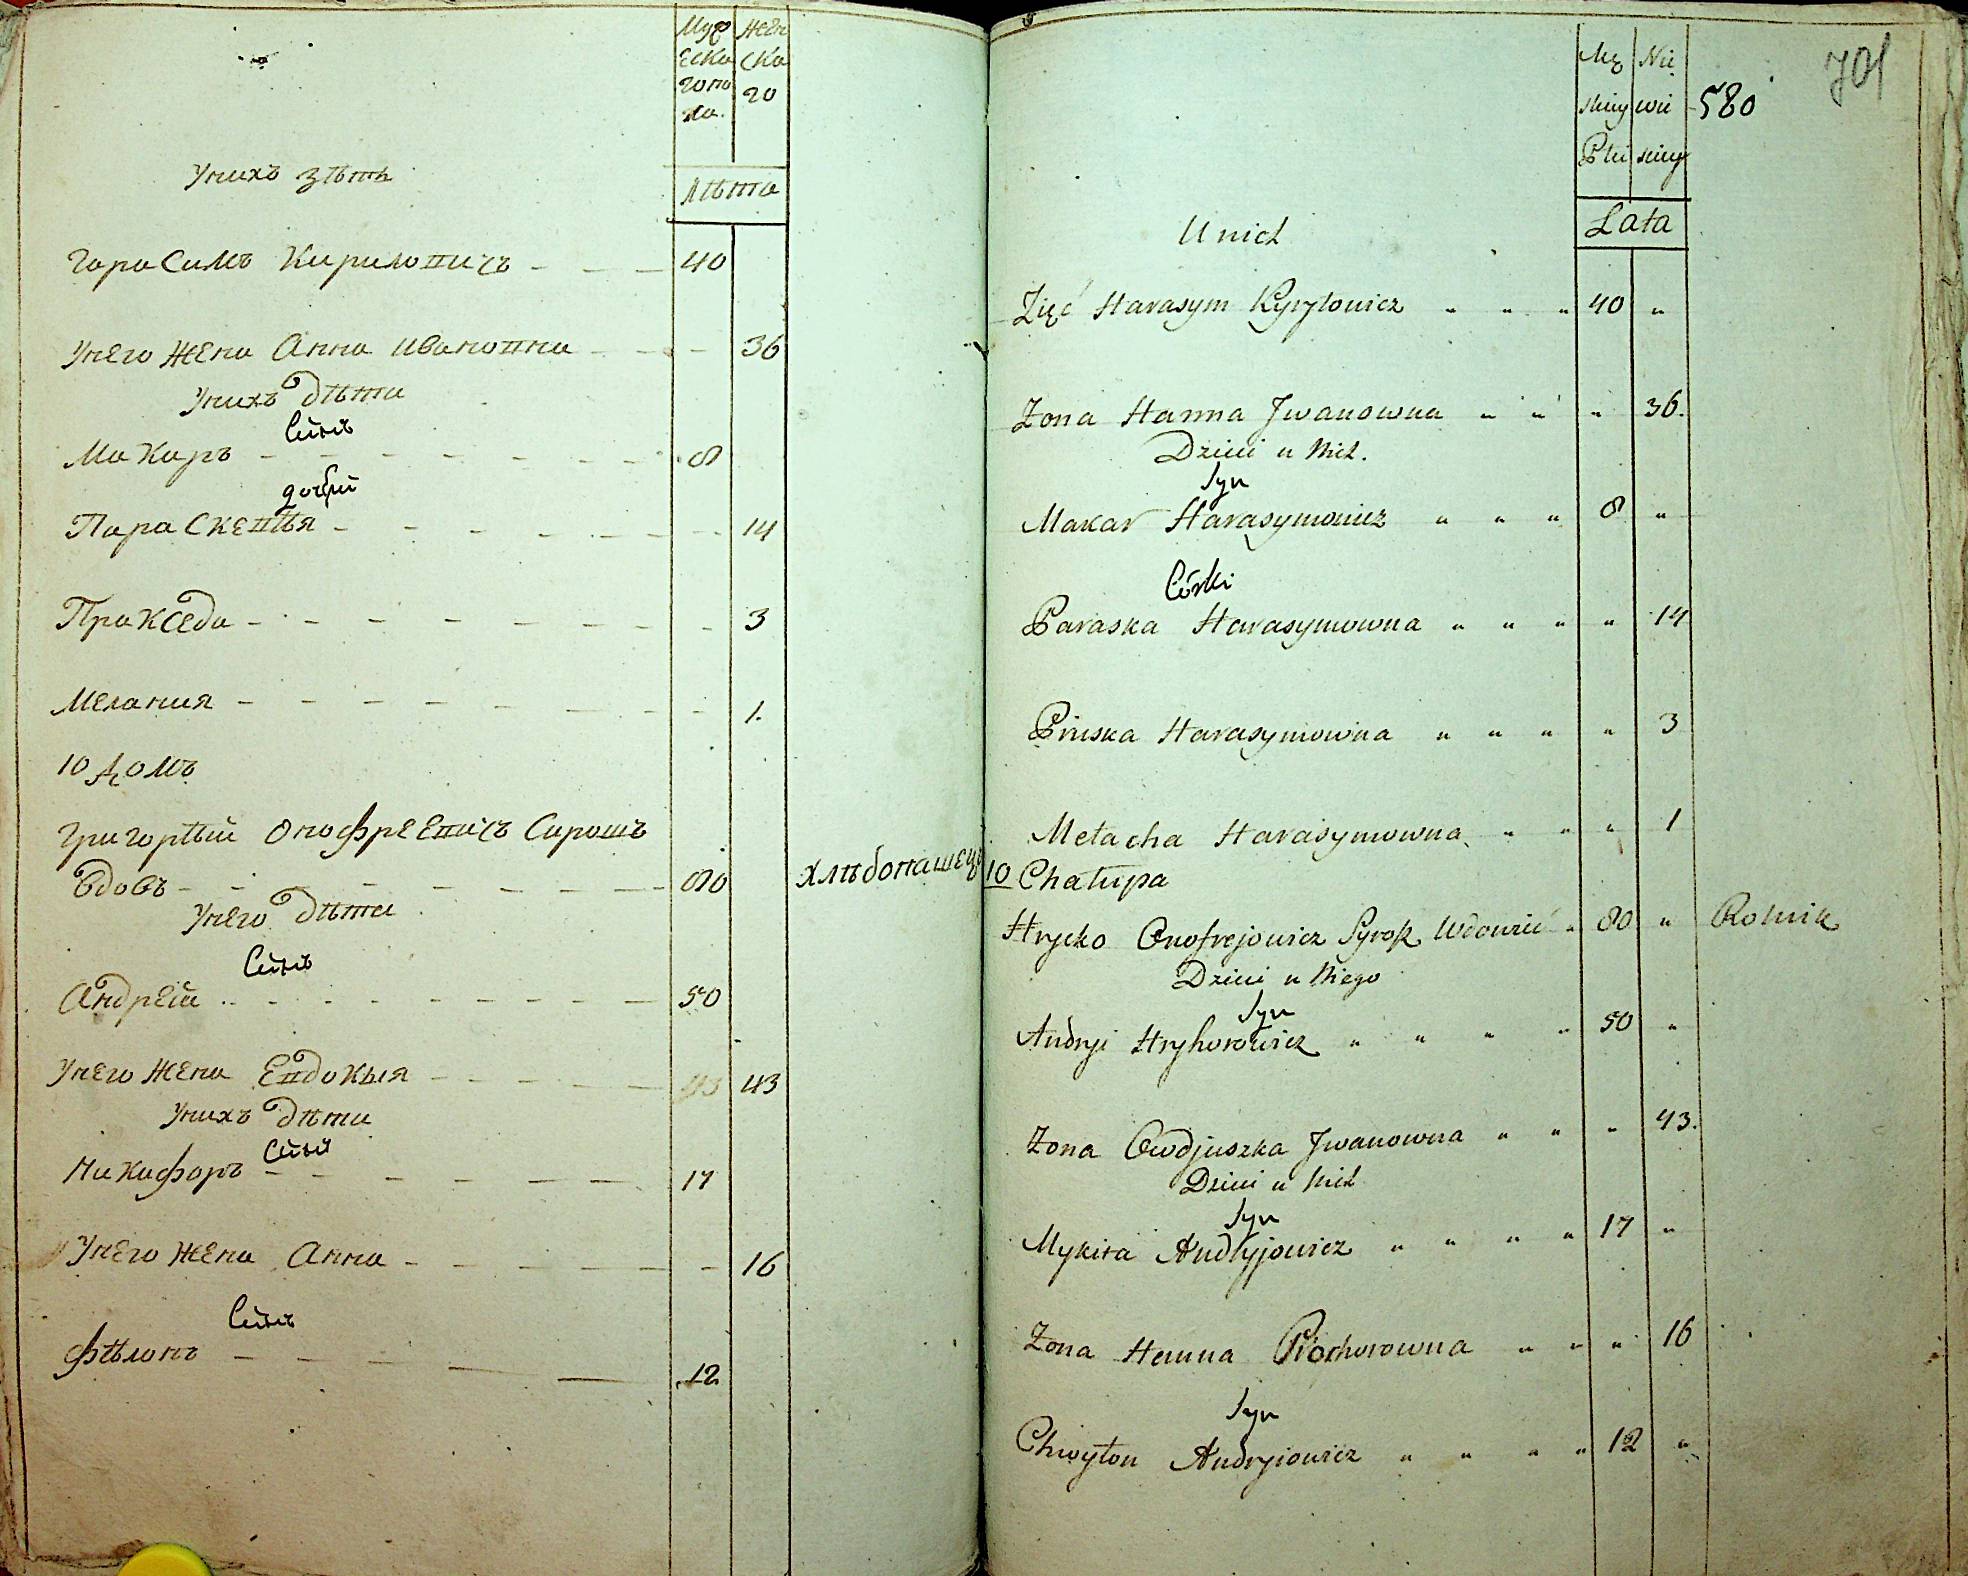 Муже Жен
ска ска
гопо го
ла.
Унихъ зѣть
лѣта
Гарасимъ Кириловичъ 40
Унего жена Анна Ивановна 36
Унихъ дѣти
Сынъ
Макаръ 8
дочери
Параскевѣя 14
Пракседа 3
Мелания 1.
10 домъ
Григорѣй Онофреевичъ Сирошъ
вдовъ 80 хлѣбопашецъ
Унего дѣти
Сынъ
Андрей 50
Унего жена Евдокыя 43 43
Унихъ дѣти
Сынъ
Никифоръ 17
Унего жена Анна 16
Сынъ
Фѣлонъ 12
701
Mę Nie
skiey wie 580
Płci skiey
Lata
U nich
Zięć Harasym Kyryłowicz " " " 40 "
Żona Hanna Jwanowna " " " 36.
Dzieci u Nich.
Syn
Makar Harasymowicz " " " 8 "
Córki
Paraska Harasymowna " " " " 14
Pruska Harasymowna " " " " 3
Metacha Harasymowna " " " 1
10 Chałupa
Hrycko Onofrejowicz Syrosz Wdowieć " 80 " Rolnik
Dzieci u Niego
Syn
Andryi Hryhorowicz " " " " 50 "
Żona Owdjuszka Jwanowna " " " 43.
Dzieci u Nich
Syn
Mykita Andryjowicz " " " " 17 "
Żona Hanna Prochorowna " " " 16
Syn
Chwyłon Andryiowicz " " " " 12 "